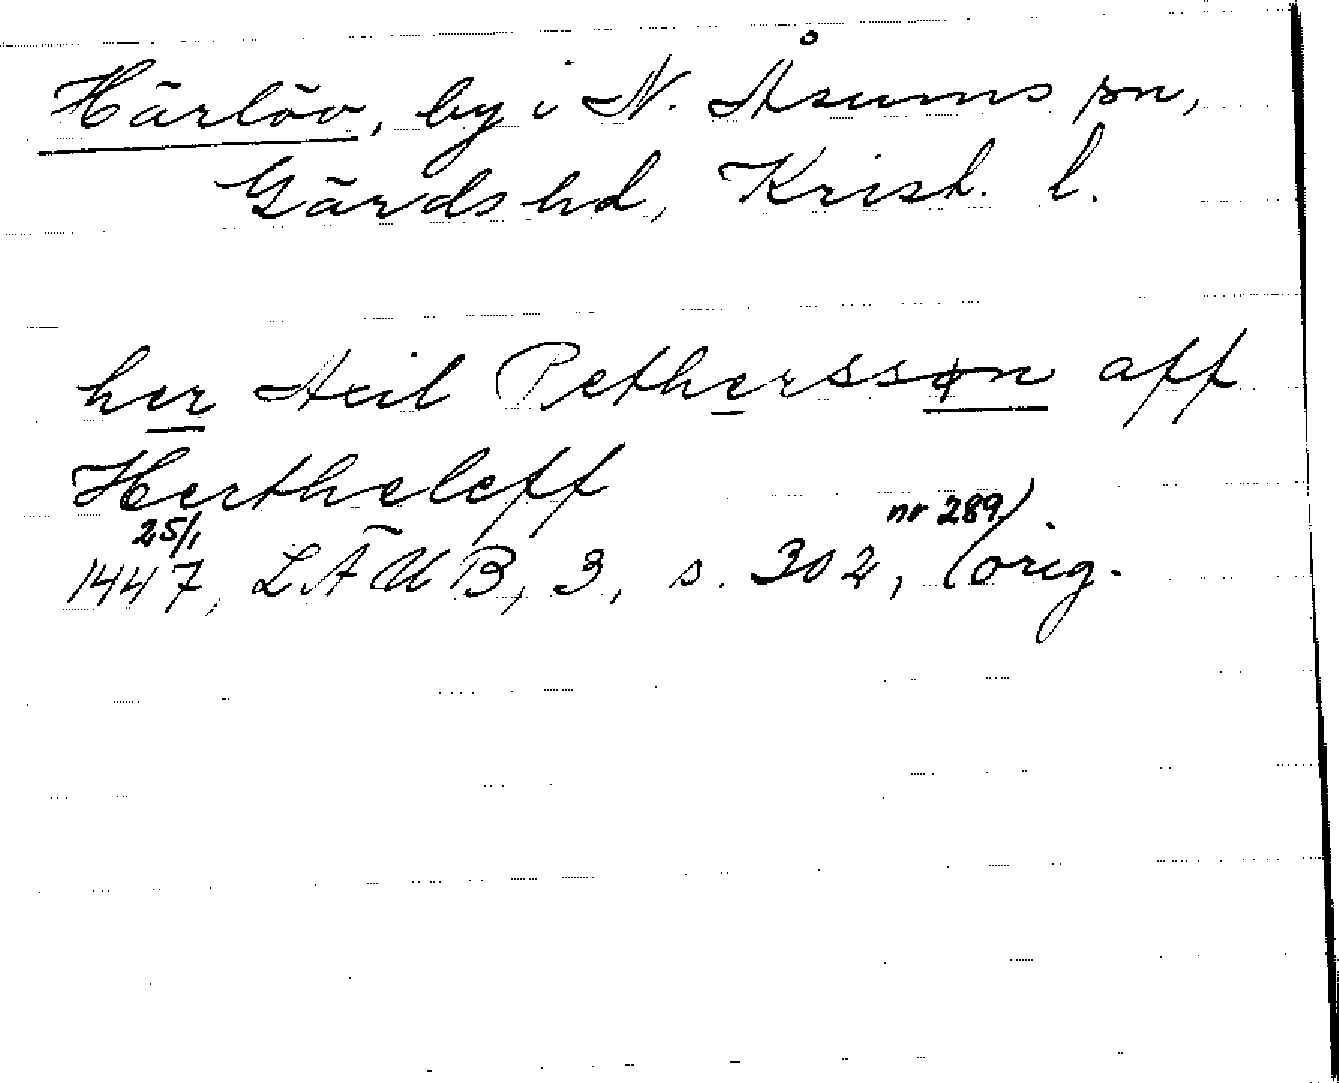 Härlöv, by i N. Åsums sn,
Gärds hd, Krist. l.
her Axil Petherssøn aff
Hertheleff
25/1 nr 289).
1447, LÄUB, 3, s. 302, (orig.